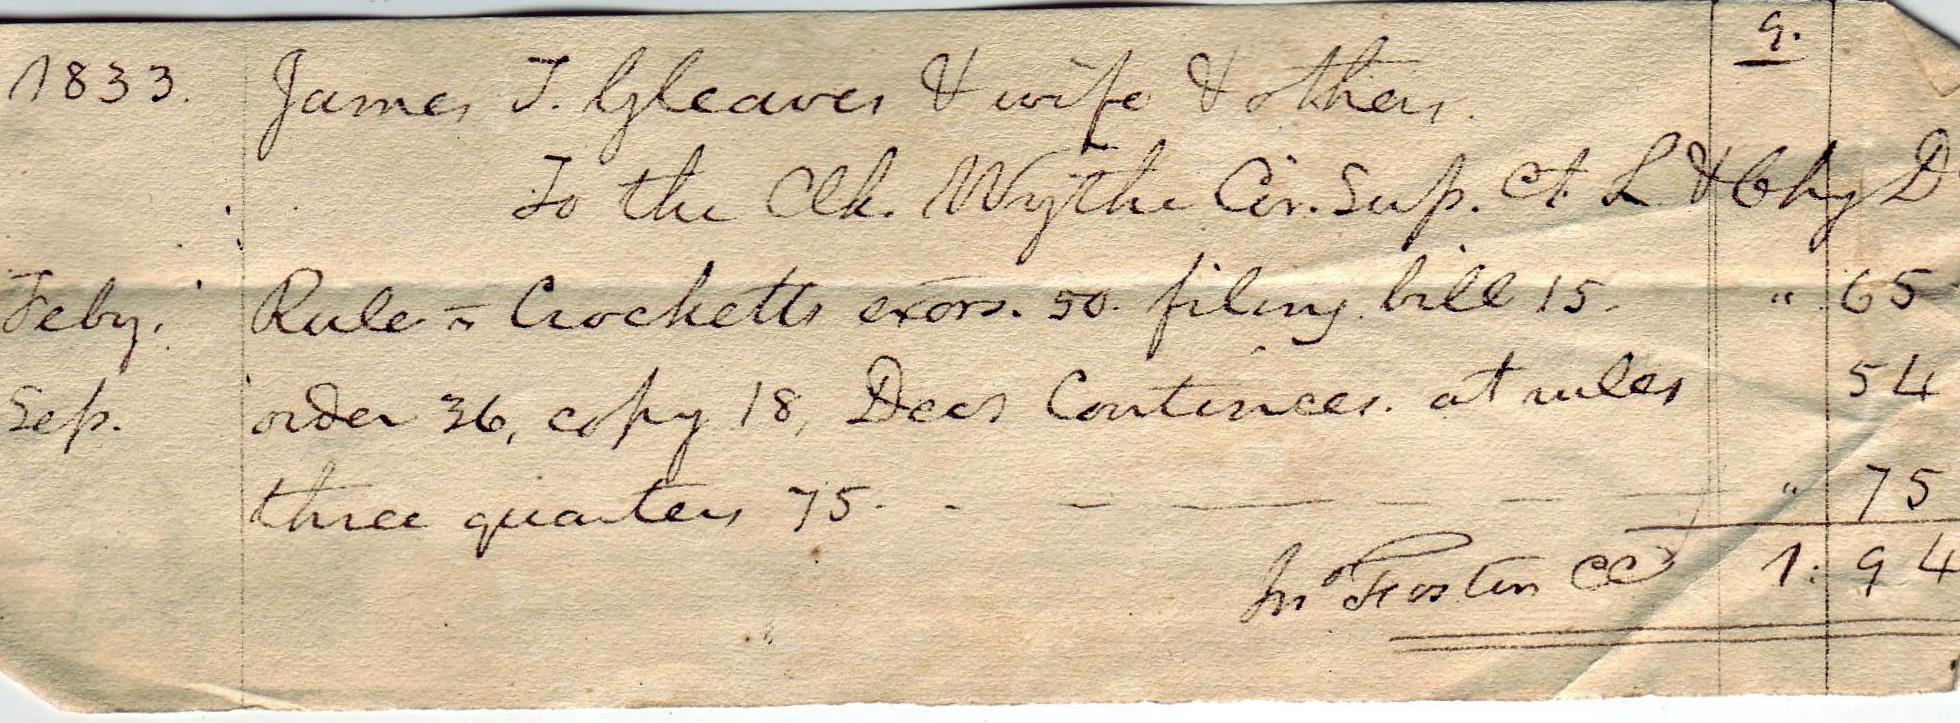 9.
1833. James T. Gleaves & wife & others.
To the Clk. Wythe Cir. Sup. Ct. L & Chy D
Feby. Rule Crocketts exors. 50. filing bill 15. " 65
Sep. order 36, copy 18, Decs Continces. at rules 54
three quarters 75. - - - - - " 75
Jno Foster CC 1: 94